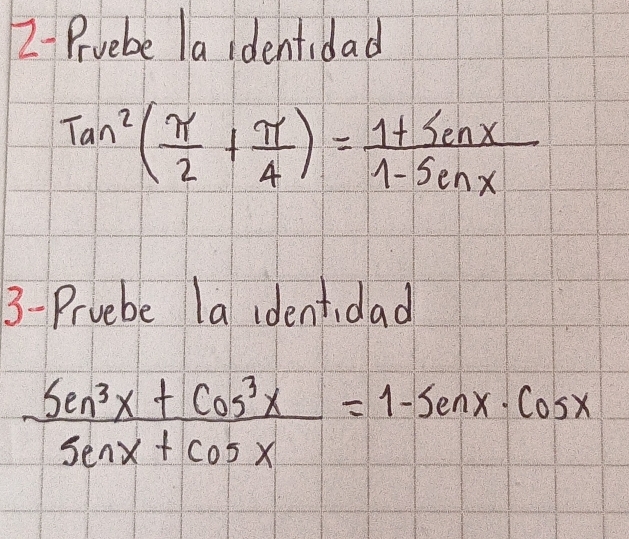 2-Pruebe la identidad
Tan²(π/2 + π/4) = 1+Senx/1-Senx
3-Pruebe la identidad
Sen³x + Cos³x/Senx + cosx = 1-Senx·Cosx